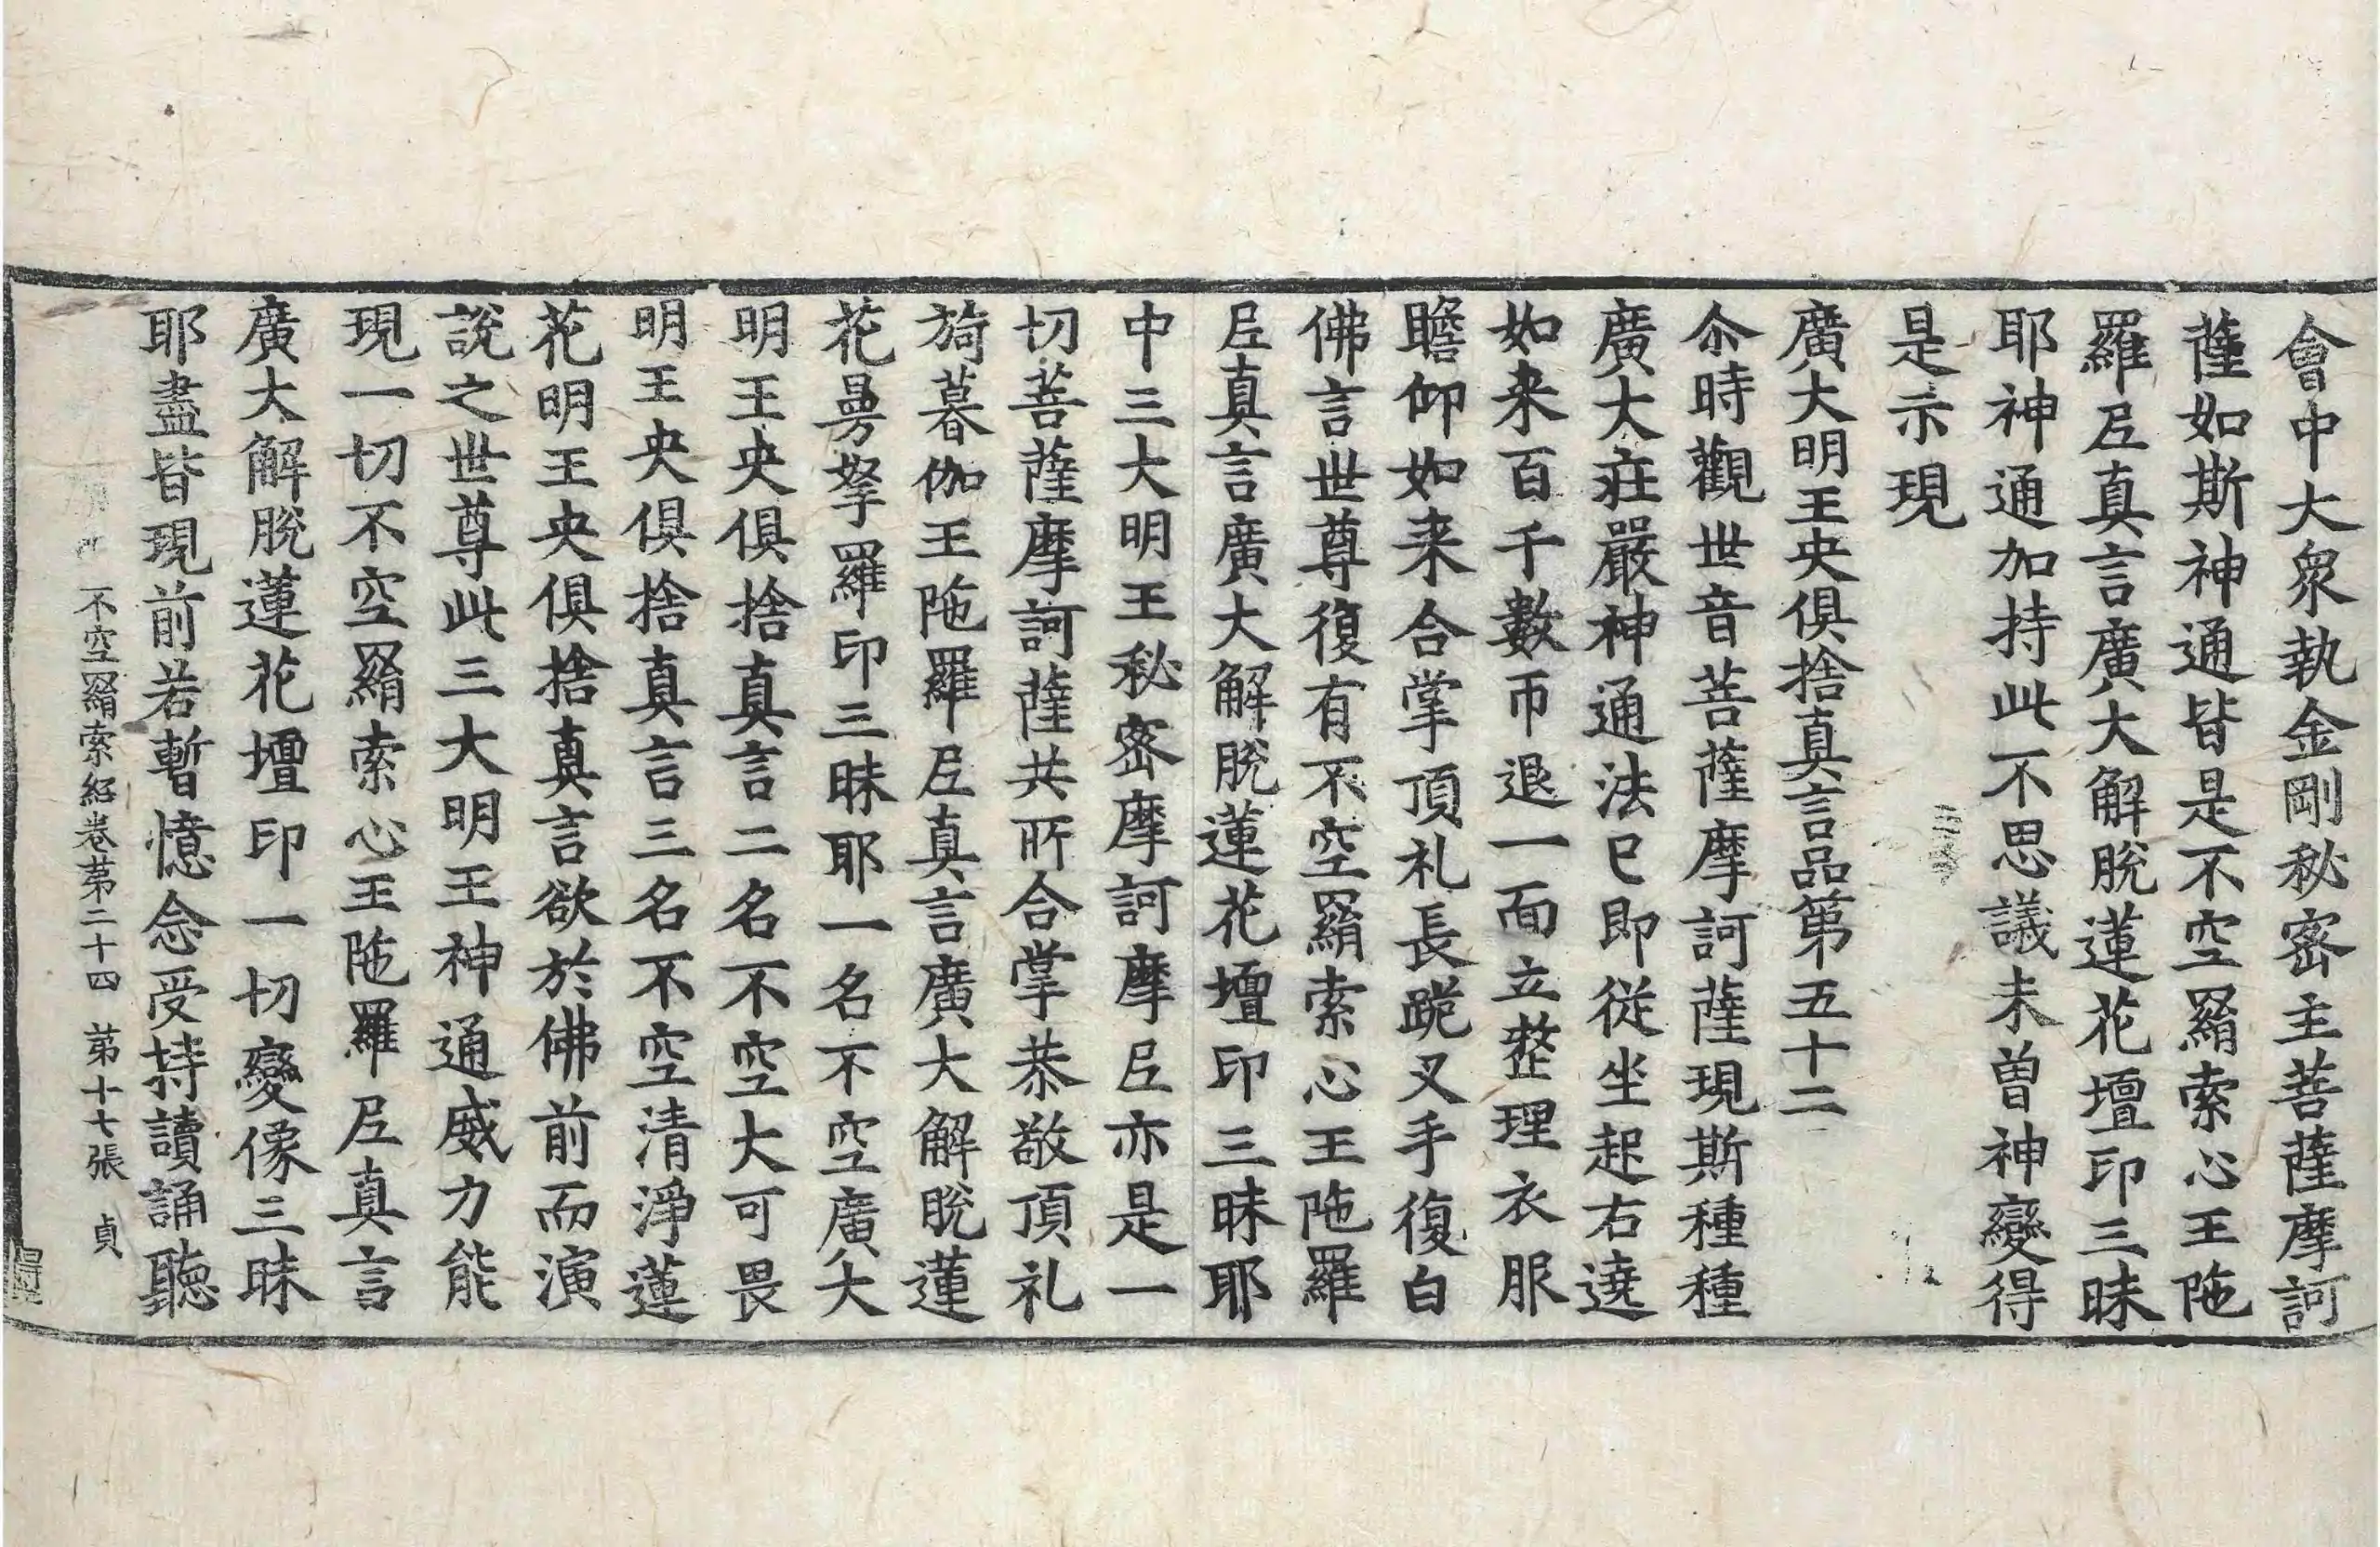 會中大衆執金剛秘密主菩薩摩訶
薩如斯神通皆是不空羂索心王陁
羅𡰱真言廣大解脫蓮花壇印三昧
耶神通加持此不思議未曾神變得
是示現
廣大明王央俱捨真言品第五十二
尒時觀世音菩薩摩訶薩現斯種種
廣大莊嚴神通法已即從坐起右遶
如来百千數帀退一面立整理衣服
瞻仰如来合掌頂礼長跪叉手復白
佛言世尊復有不空羂索心王陁羅
𡰱真言廣大解脫蓮花壇印三昧耶
中三大明王秘密摩訶摩𡰱亦是一
切菩薩摩訶薩共所合掌恭敬頂礼
旖暮伽王陁羅𡰱真言廣大解脫蓮
花曼拏羅印三昧耶一名不空廣大
明王央俱捨真言二名不空大可畏
明王央俱捨真言三名不空清淨蓮
花明王央俱捨真言欲於佛前而演
說之世尊此三大明王神通威力能
現一切不空羂索心王陁羅𡰱真言
廣大解脫蓮花壇印一切變像三昧
耶盡皆現前若暫憶念受持讀誦聽
不空羂索經卷苐二十四 苐十七張 貞